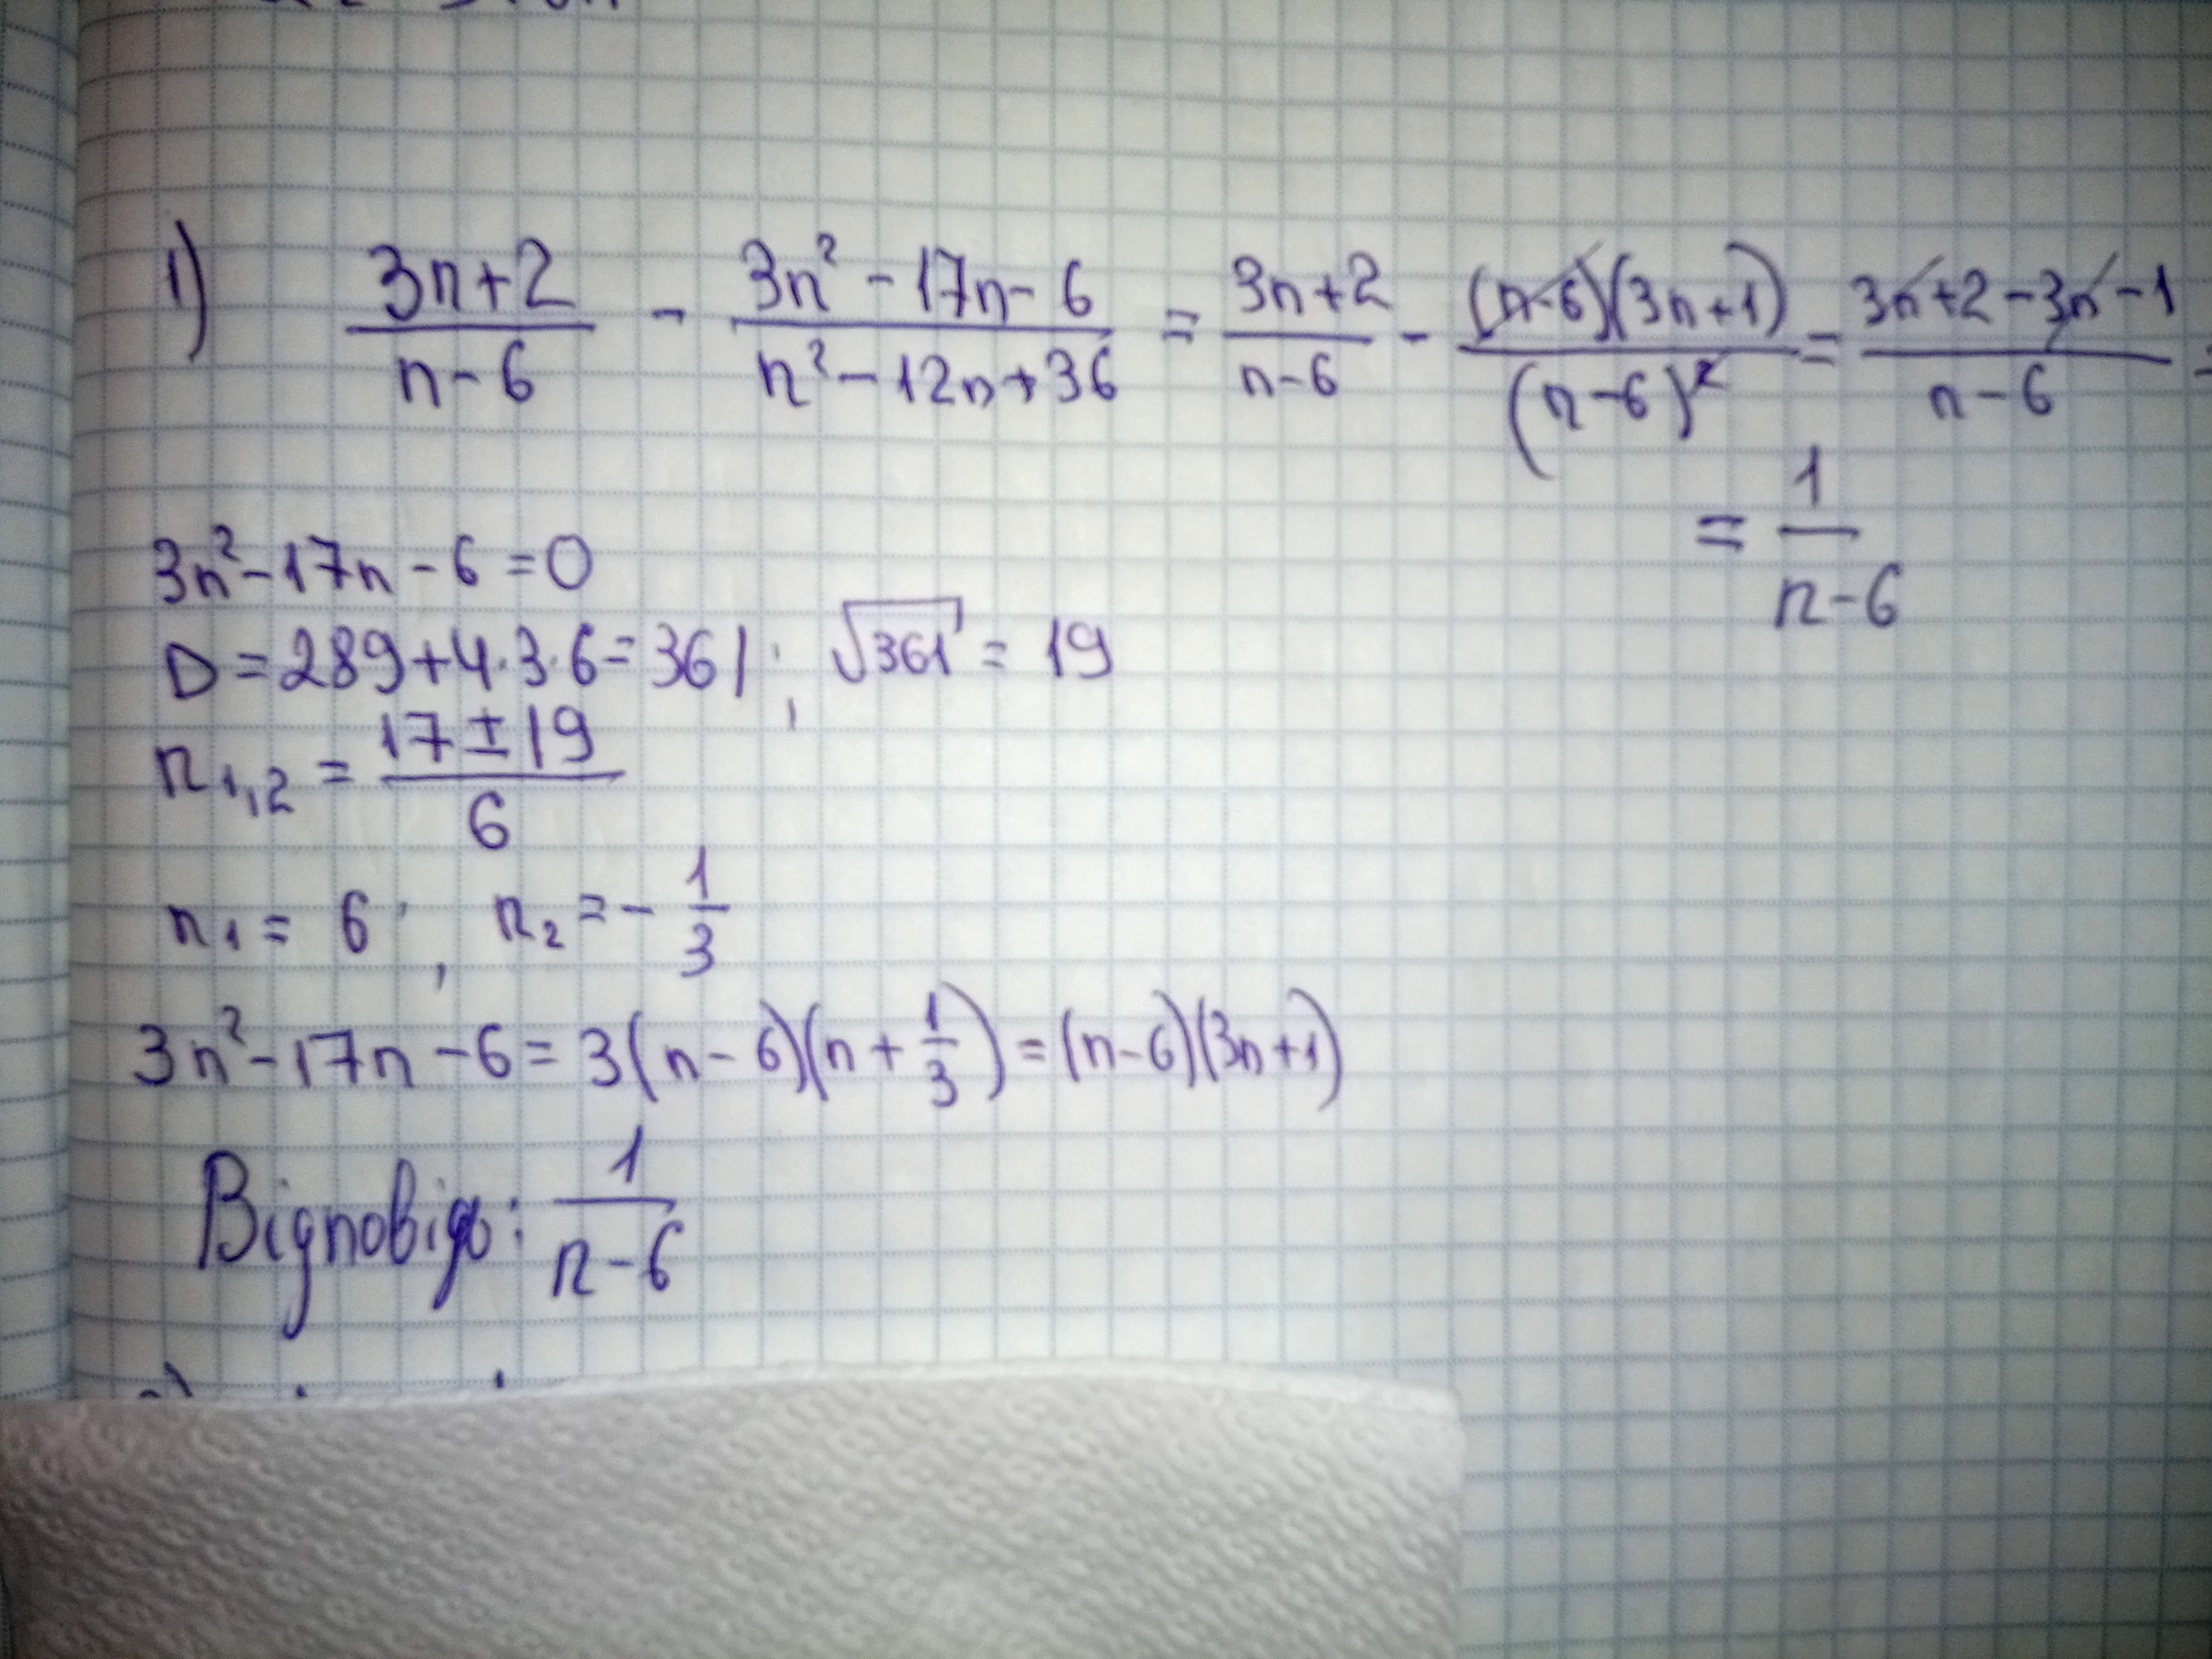 1) (3n+2)/(n-6) - (3n² - 17n - 6)/(n² - 12n + 36) = (3n+2)/(n-6) - ((n-6)(3n+1))/((n-6)²) = (3n+2-3n-1)/(n-6) =
= 1/(n-6)
3n² - 17n - 6 = 0
D = 289 + 4·3·6 = 361; √361 = 19
n₁,₂ = (17 ± 19)/6
n₁ = 6; n₂ = -1/3
3n² - 17n - 6 = 3(n-6)(n + 1/3) = (n-6)(3n+1)
Відповідь: 1/(n-6)